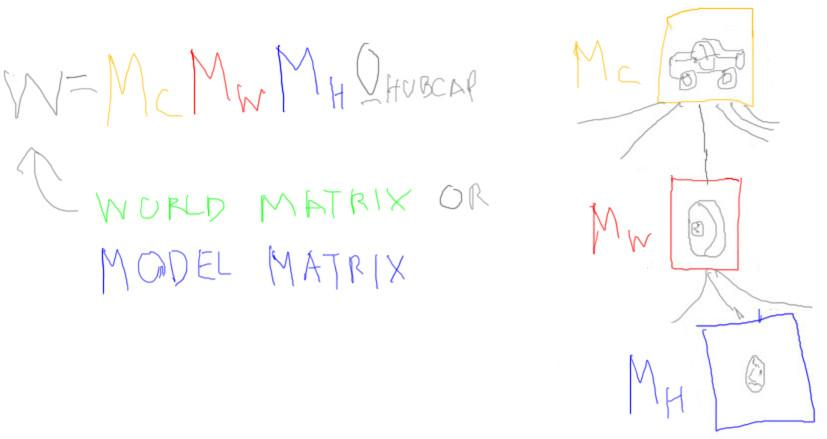 W = M_C M_W M_H O_HUBCAP
WORLD MATRIX OR
MODEL MATRIX
M_C
M_W
M_H